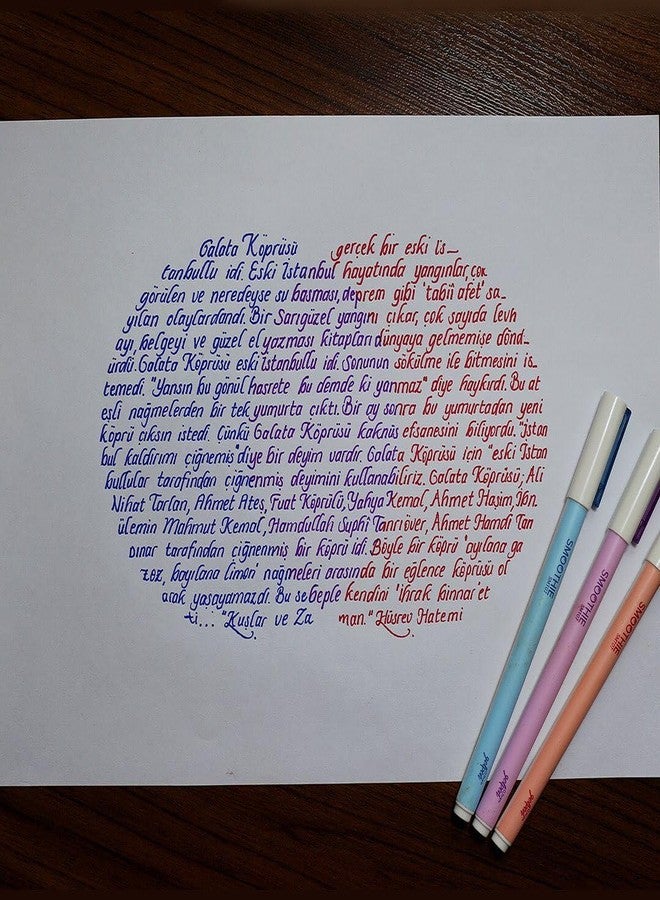 Galata Köprüsü gerçek bir eski İs_
tanbullu idi. Eski İstanbul hayatında yangınlar, çok
görülen ve neredeyse su basması, deprem gibi 'tabii afet' sa_
yılan olaylardandı. Bir Sarıgüzel yangını çıkar, çok sayıda levh
ayı, belgeyi ve güzel el yazması kitapları dünyaya gelmemişe dönd_
ürdü. Galata Köprüsü eski İstanbullu idi. Sonunun sökülme ile bitmesini is_
temedi. "Yansın bu gönül hasrete bu demde ki yanmaz" diye haykırdı. Bu at
eşli nağmelerden bir tek yumurta çıktı. Bir ay sonra bu yumurtadan yeni
köprü çıksın istedi. Çünkü Galata Köprüsü kaknüs efsanesini biliyordu. "İstan
bul kaldırımı çiğnemiş diye bir deyim vardır. Galata Köprüsü için "eski İstan
bullular tarafından çiğnenmiş deyimini kullanabiliriz. Galata Köprüsü; Ali
Nihat Tarlan, Ahmet Ateş, Fuat Köprülü, Yahya Kemal, Ahmet Haşim, İbn.
ülemin Mahmut Kemal, Hamdullah Suphi Tanrıöver, Ahmet Hamdi Tan
pınar tarafından çiğnenmiş bir köprü idi. Böyle bir köprü 'ayılana ga
zoz, bayılana limon' nağmeleri arasında bir eğlence köprüsü ol
arak yaşayamazdı. Bu sebeple kendini 'ihrak binnar' et
ti... "Kuşlar ve Za man." Hüsrev Hatemi
SMOOTHIE
SMOOTHIE
SMOOTHIE